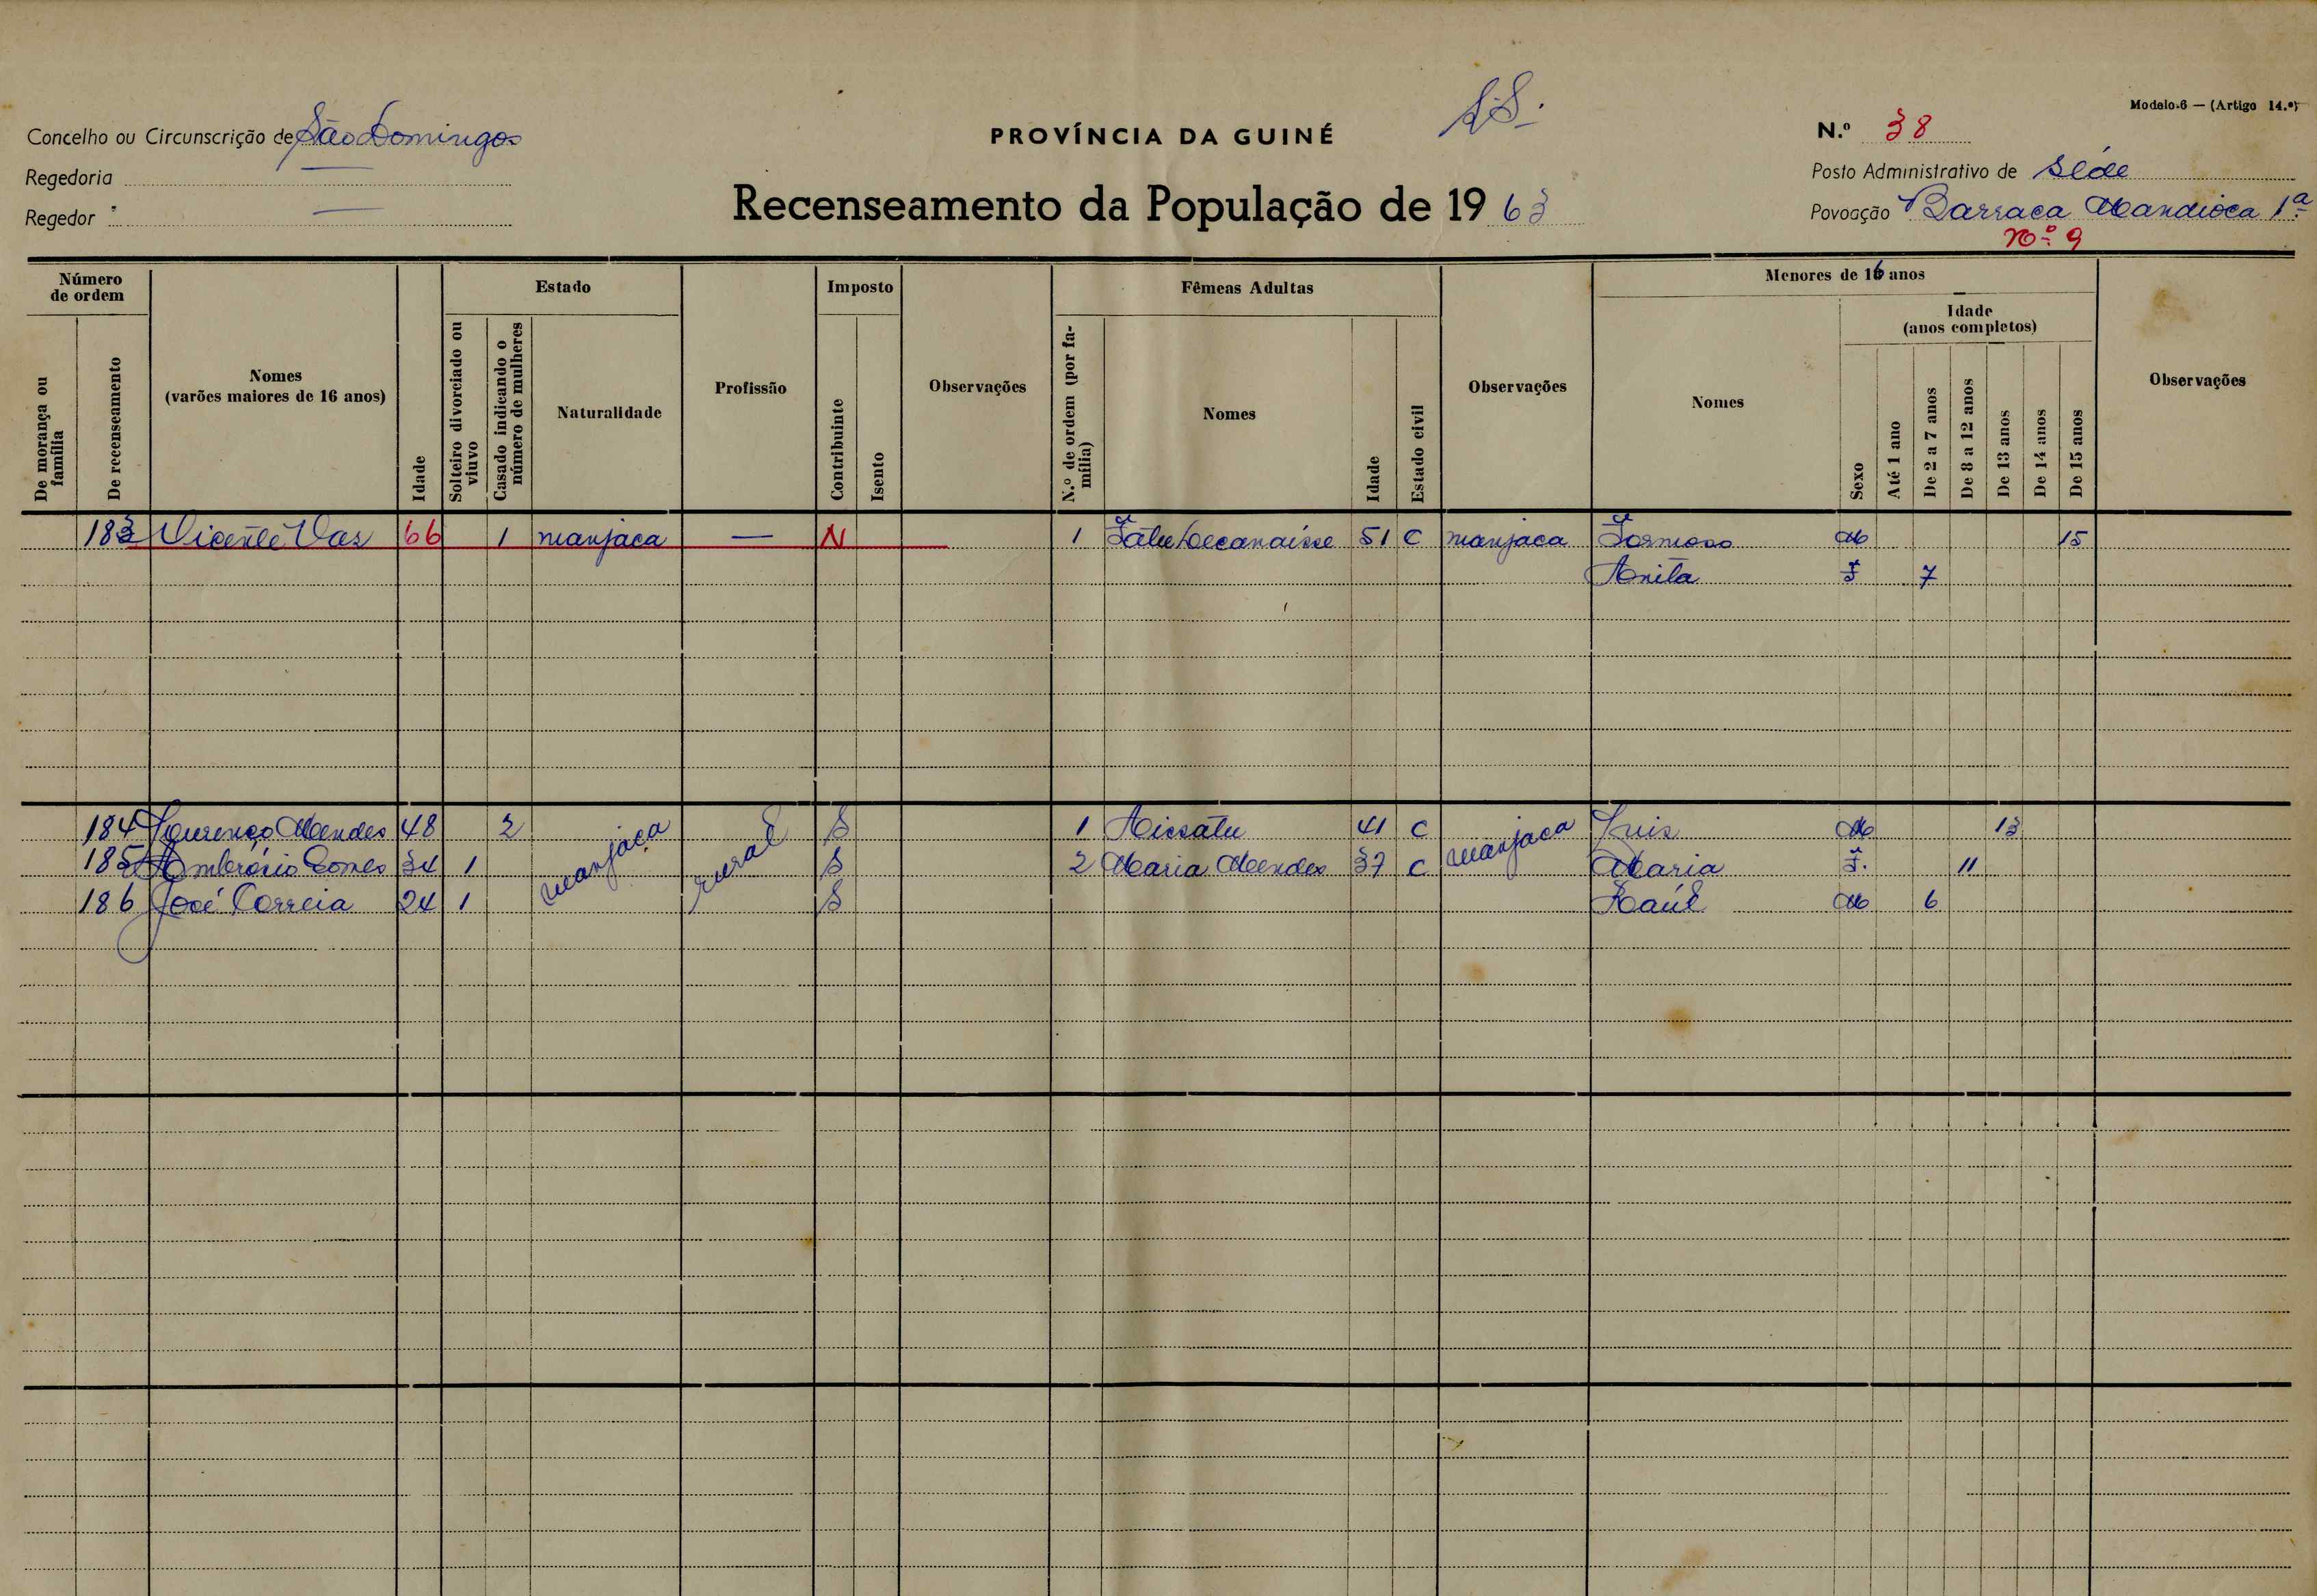 Modelo 6 — (Artigo 14.º)
Concelho ou Circunscrição de São Domingos
PROVÍNCIA DA GUINÉ
N.º 38
Regedoria —
Posto Administrativo de Séde
Regedor —
Recenseamento da População de 1963
Povoação Barraca Mandioca 1ª
Nº 9
Número de ordem
De morança ou família
De recenseamento
Nomes
(varões maiores de 16 anos)
Idade
Estado
Solteiro divorciado ou viuvo
Casado indicando o número de mulheres
Naturalidade
Profissão
Imposto
Contribuinte
Isento
Observações
Fêmeas Adultas
N.º de ordem (por família)
Nomes
Idade
Estado civil
Observações
Menores de 16 anos
Nomes
Sexo
Idade
(anos completos)
Até 1 ano
De 2 a 7 anos
De 8 a 12 anos
De 13 anos
De 14 anos
De 15 anos
Observações
183 Vicente Vaz 66 1 manjaca — N 1 51 C manjaca Formoso M 15
Anita F 7
184 Lourenço Mendes 48 2 manjaca rural S 1 Aissatu 41 C manjaca Luis M 13
185 Ambrósio Gomes 34 1 S 2 Maria Mendes 37 C Maria F. 11
186 José Correia 24 1 S Raúl M 6